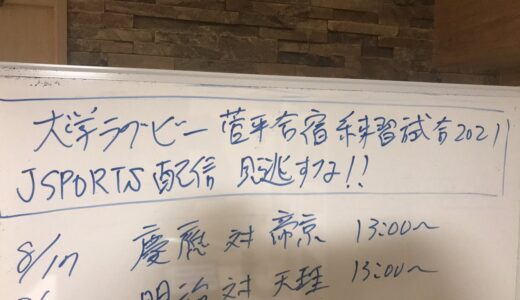 大学ラグビー 菅平合宿練習試合2021
JSPORTS配信 見逃すな!!
8/17 慶應 対 帝京 13:00〜
明治 対 天理 13:00〜